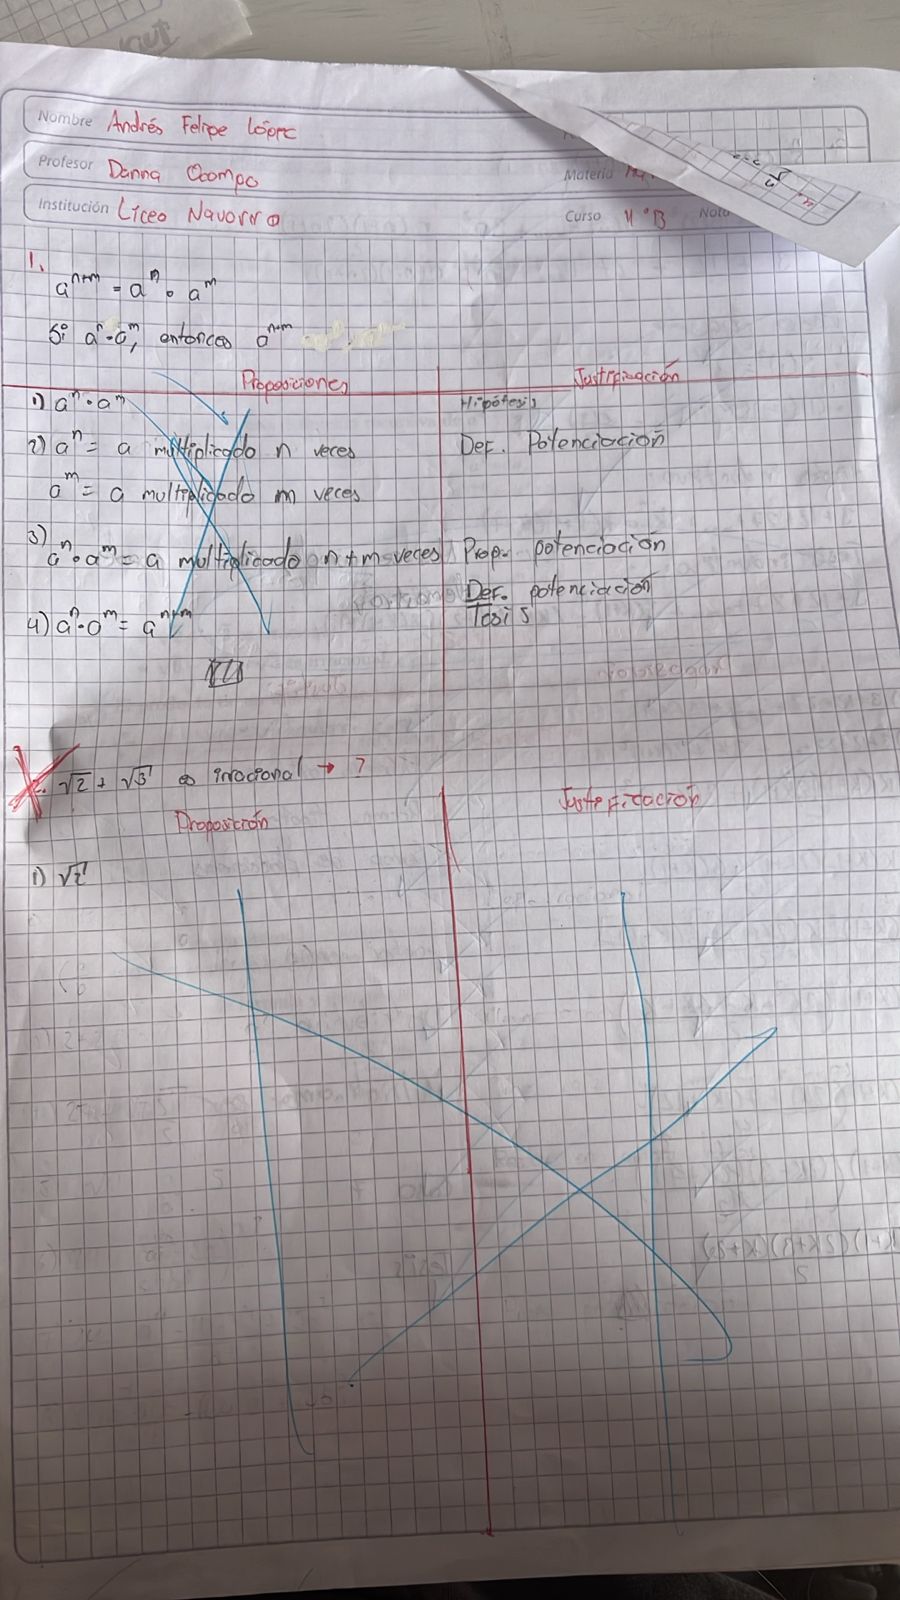 Nombre Andrés Felipe López
Profesor Danna Ocampo
Materia
Institución Liceo Navarro
Curso 11°B Nota
1.
a^{n+m} = a^n · a^m
Si a^n · a^m, entonces a^{n+m}
Proposiciones Justificación
1) a^n · a^m Hipótesis
2) a^n = a multiplicado n veces Def. Potenciación
a^m = a multiplicado m veces
3) a^n · a^m = a multiplicado n+m veces Prop. potenciación
Def. potenciación
4) a^n · a^m = a^{n+m} Tesis
2. √2 + √3 es irracional → ?
Proposición Justificación
1) √2